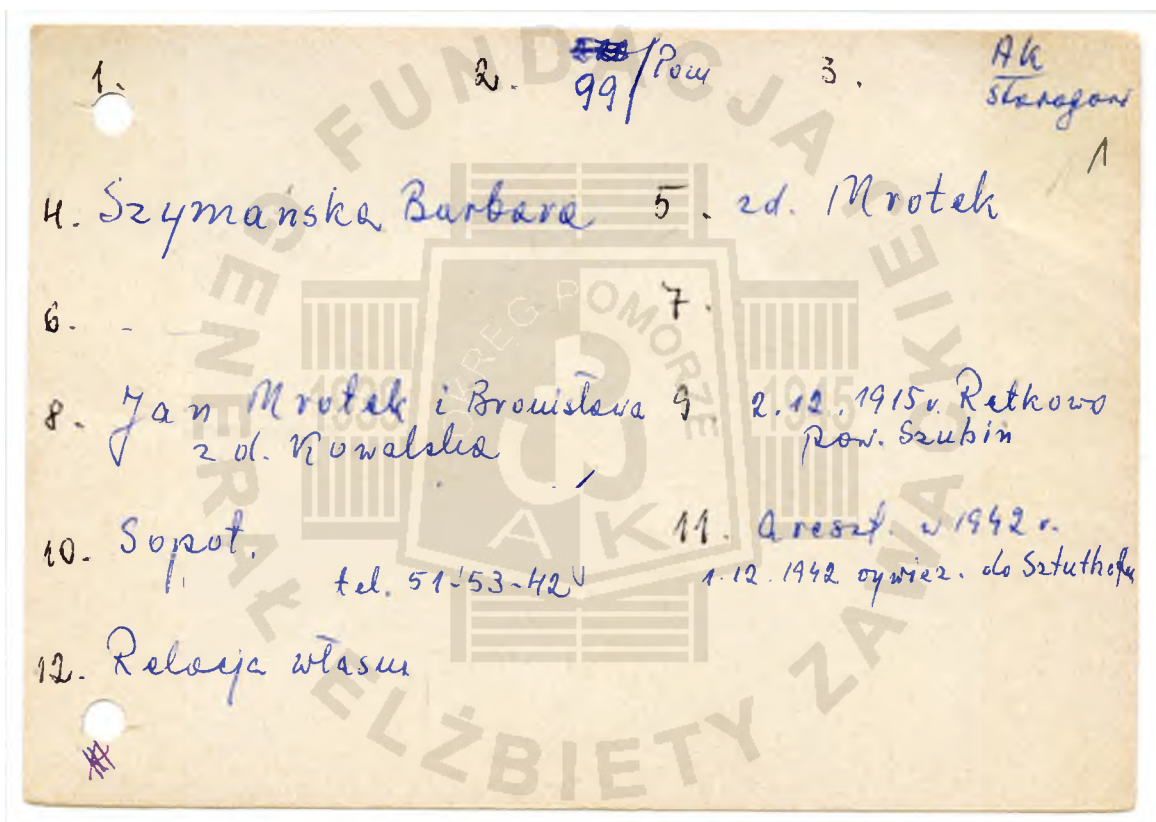 1. 2. 99/Pom 3. AK
Starogard
1
4. Szymańska Barbara 5. zd. Mrotek
6. - 7.
8. Jan Mrotek i Bronisława 9. 2.12.1915r. Retkowo
z d. Kowalska pow. Szubin
10. Sopot. 11. Areszt. w 1942 r.
tel. 51-53-42 1.12.1942 wywiez. do Sztuthofu
12. Relacja własna
FUNDACJA GENERAŁ ELŻBIETY ZAWACKIEJ
OKRĘG POMORZE
1939 1945
AK